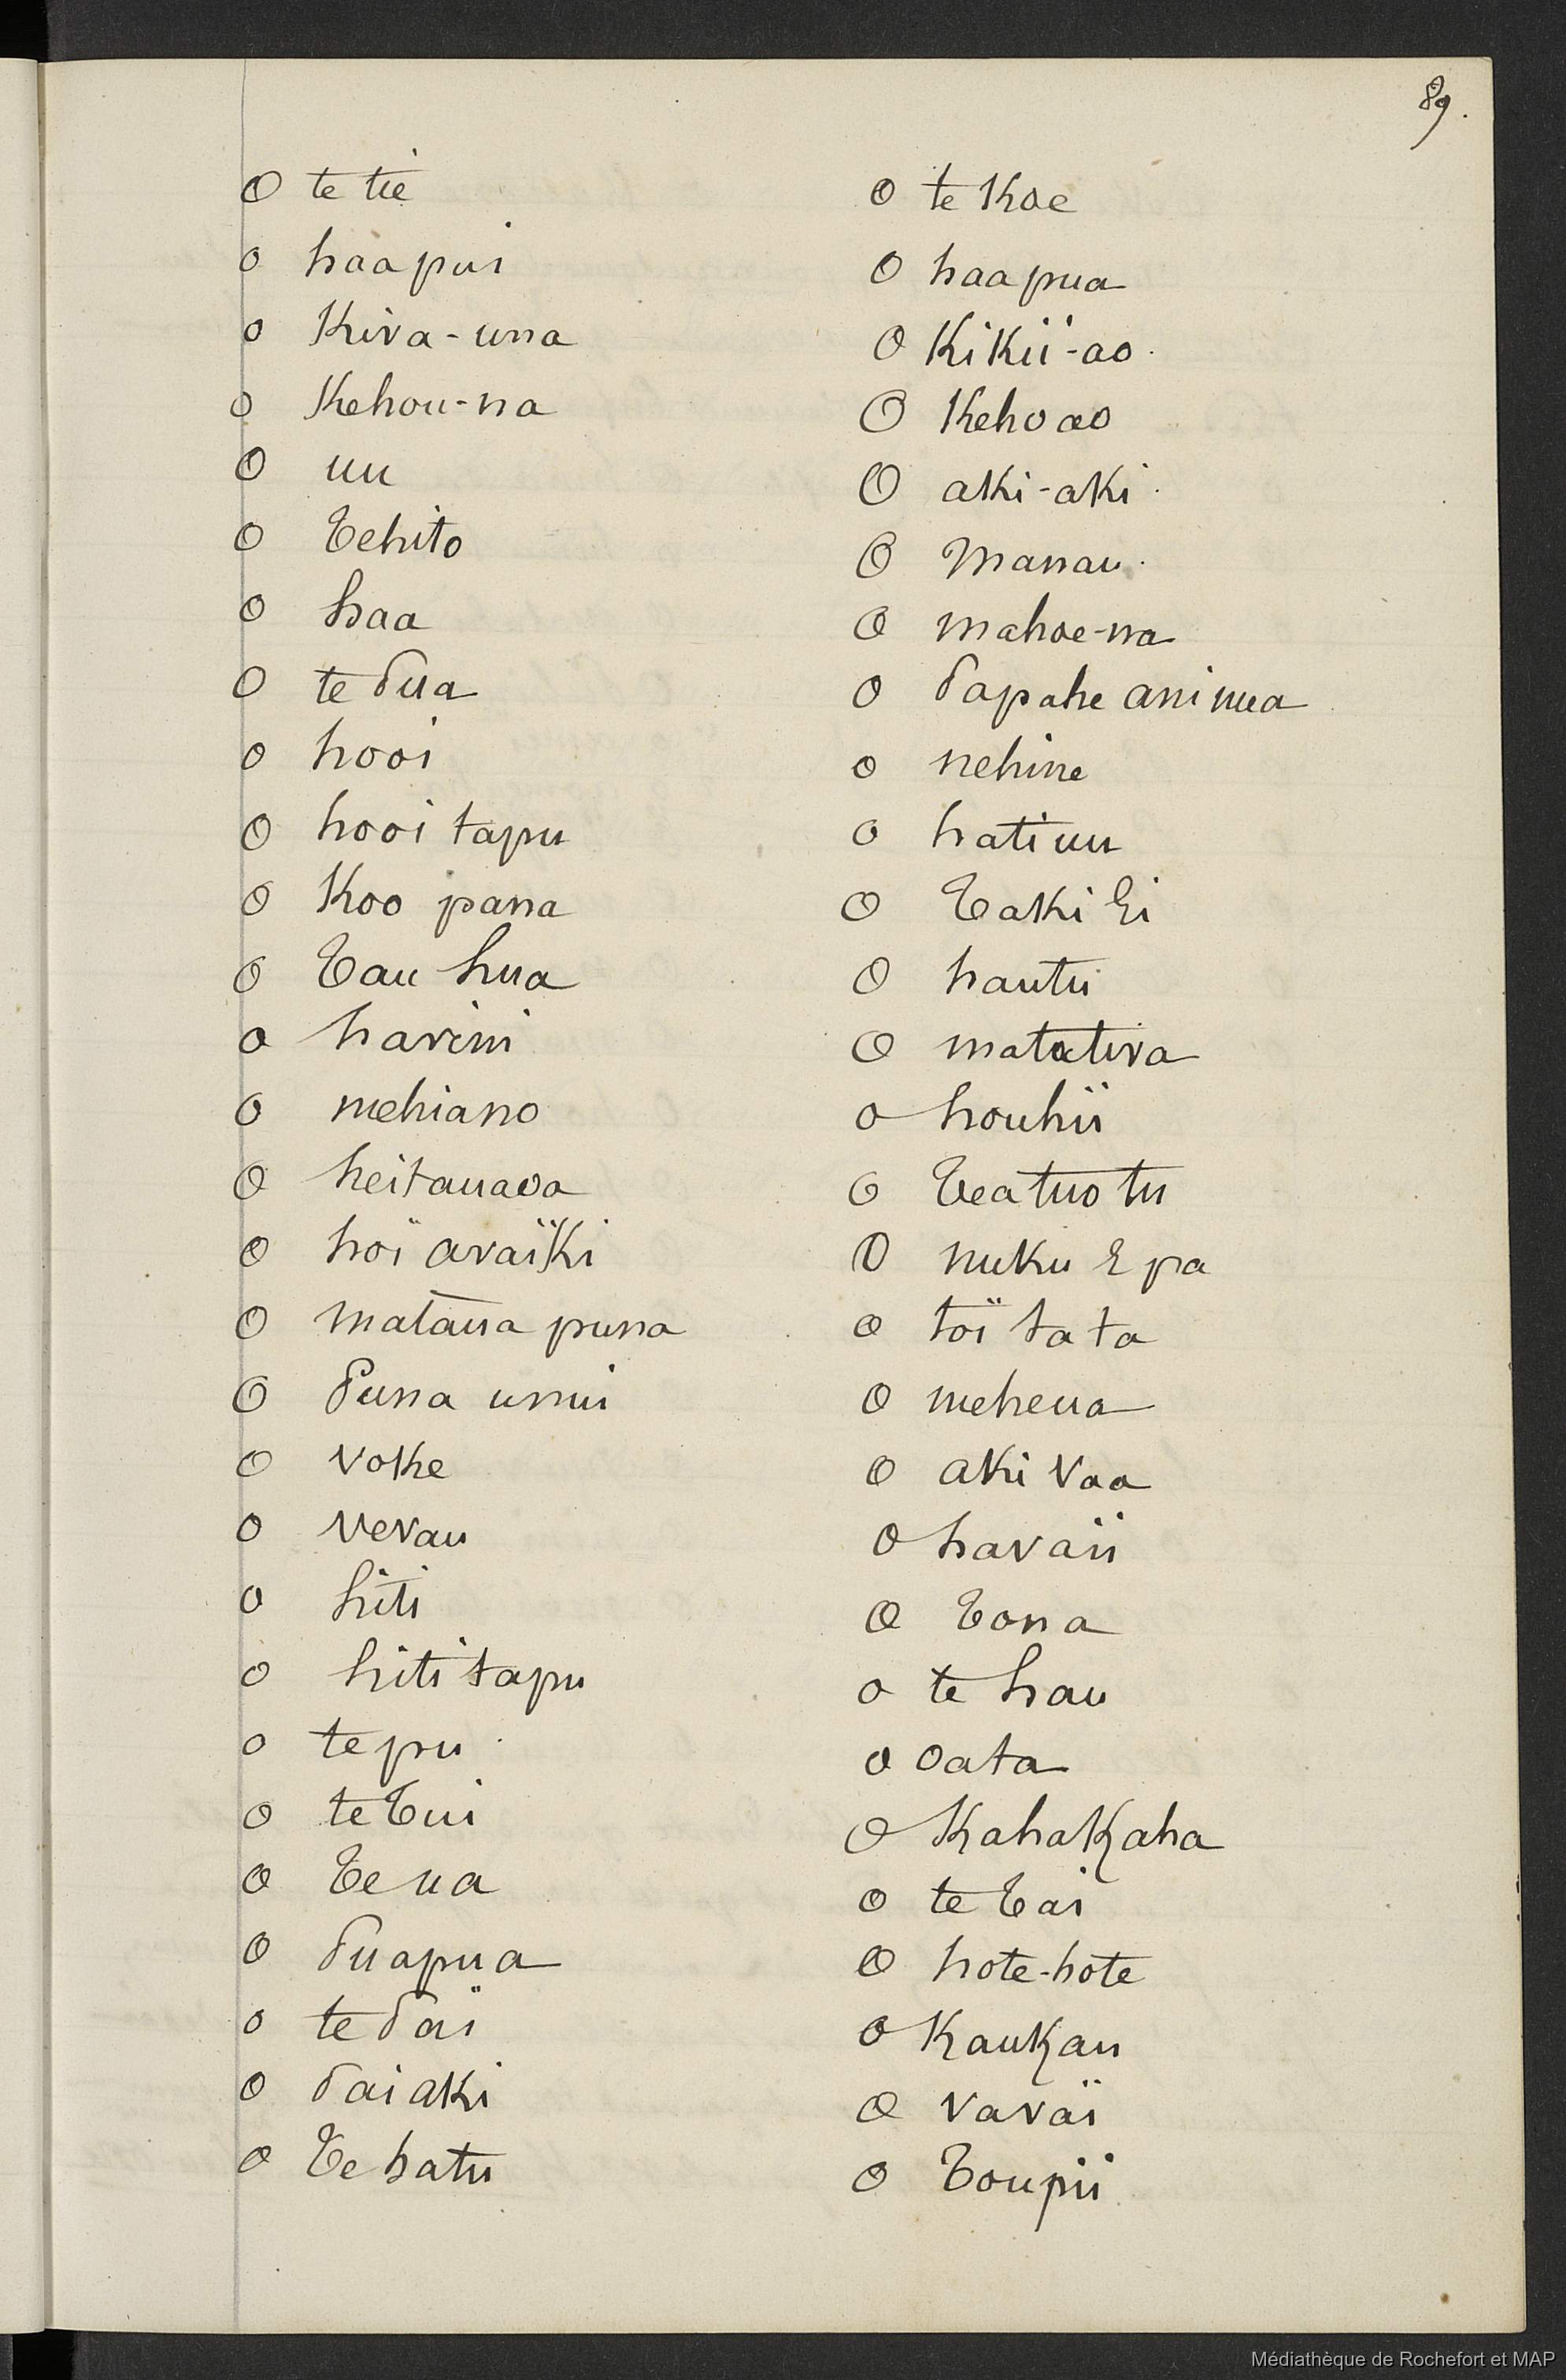 89.
O te tie
o haapui
o Kiva-una
o Kehou-na
O uu
O Tehito
O haa
O te Pua
o hooi
O hooi tapu
O Koo pana
O Tau hua
o havini
O mehiano
O heitauaoa
O hoï avaïki
O mataua puna
O Puna umui
O voke
O vevau
O hiti
O hiti tapu
o tepu
O te Tui
O Te ua
O Puapua
o te Païi
O Pai aki
O Te hatu
O te Koe
O haapua
O Kikii-ao
O Keho ao
O aki-aki
O Manau
O mahoe-na
O Papahe ani nua
o nehine
O hati uu
O Taki Ei
O hautu
O matativa
O houhii
O Teatuo tu
O nuku Epa
O toï tata
O meheua
O aki Vaa
O havaii
O Tona
O te hau
O oata
O KahaKaha
O te Tai
O hote-hote
O KauKau
O vavaï
O Toupii
Médiathèque de Rochefort et MAP